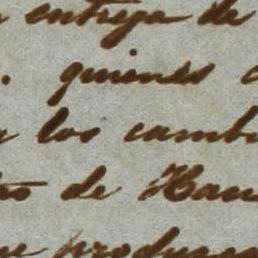 entrega de
. quienes
los cambi
to de Hau
ue producen